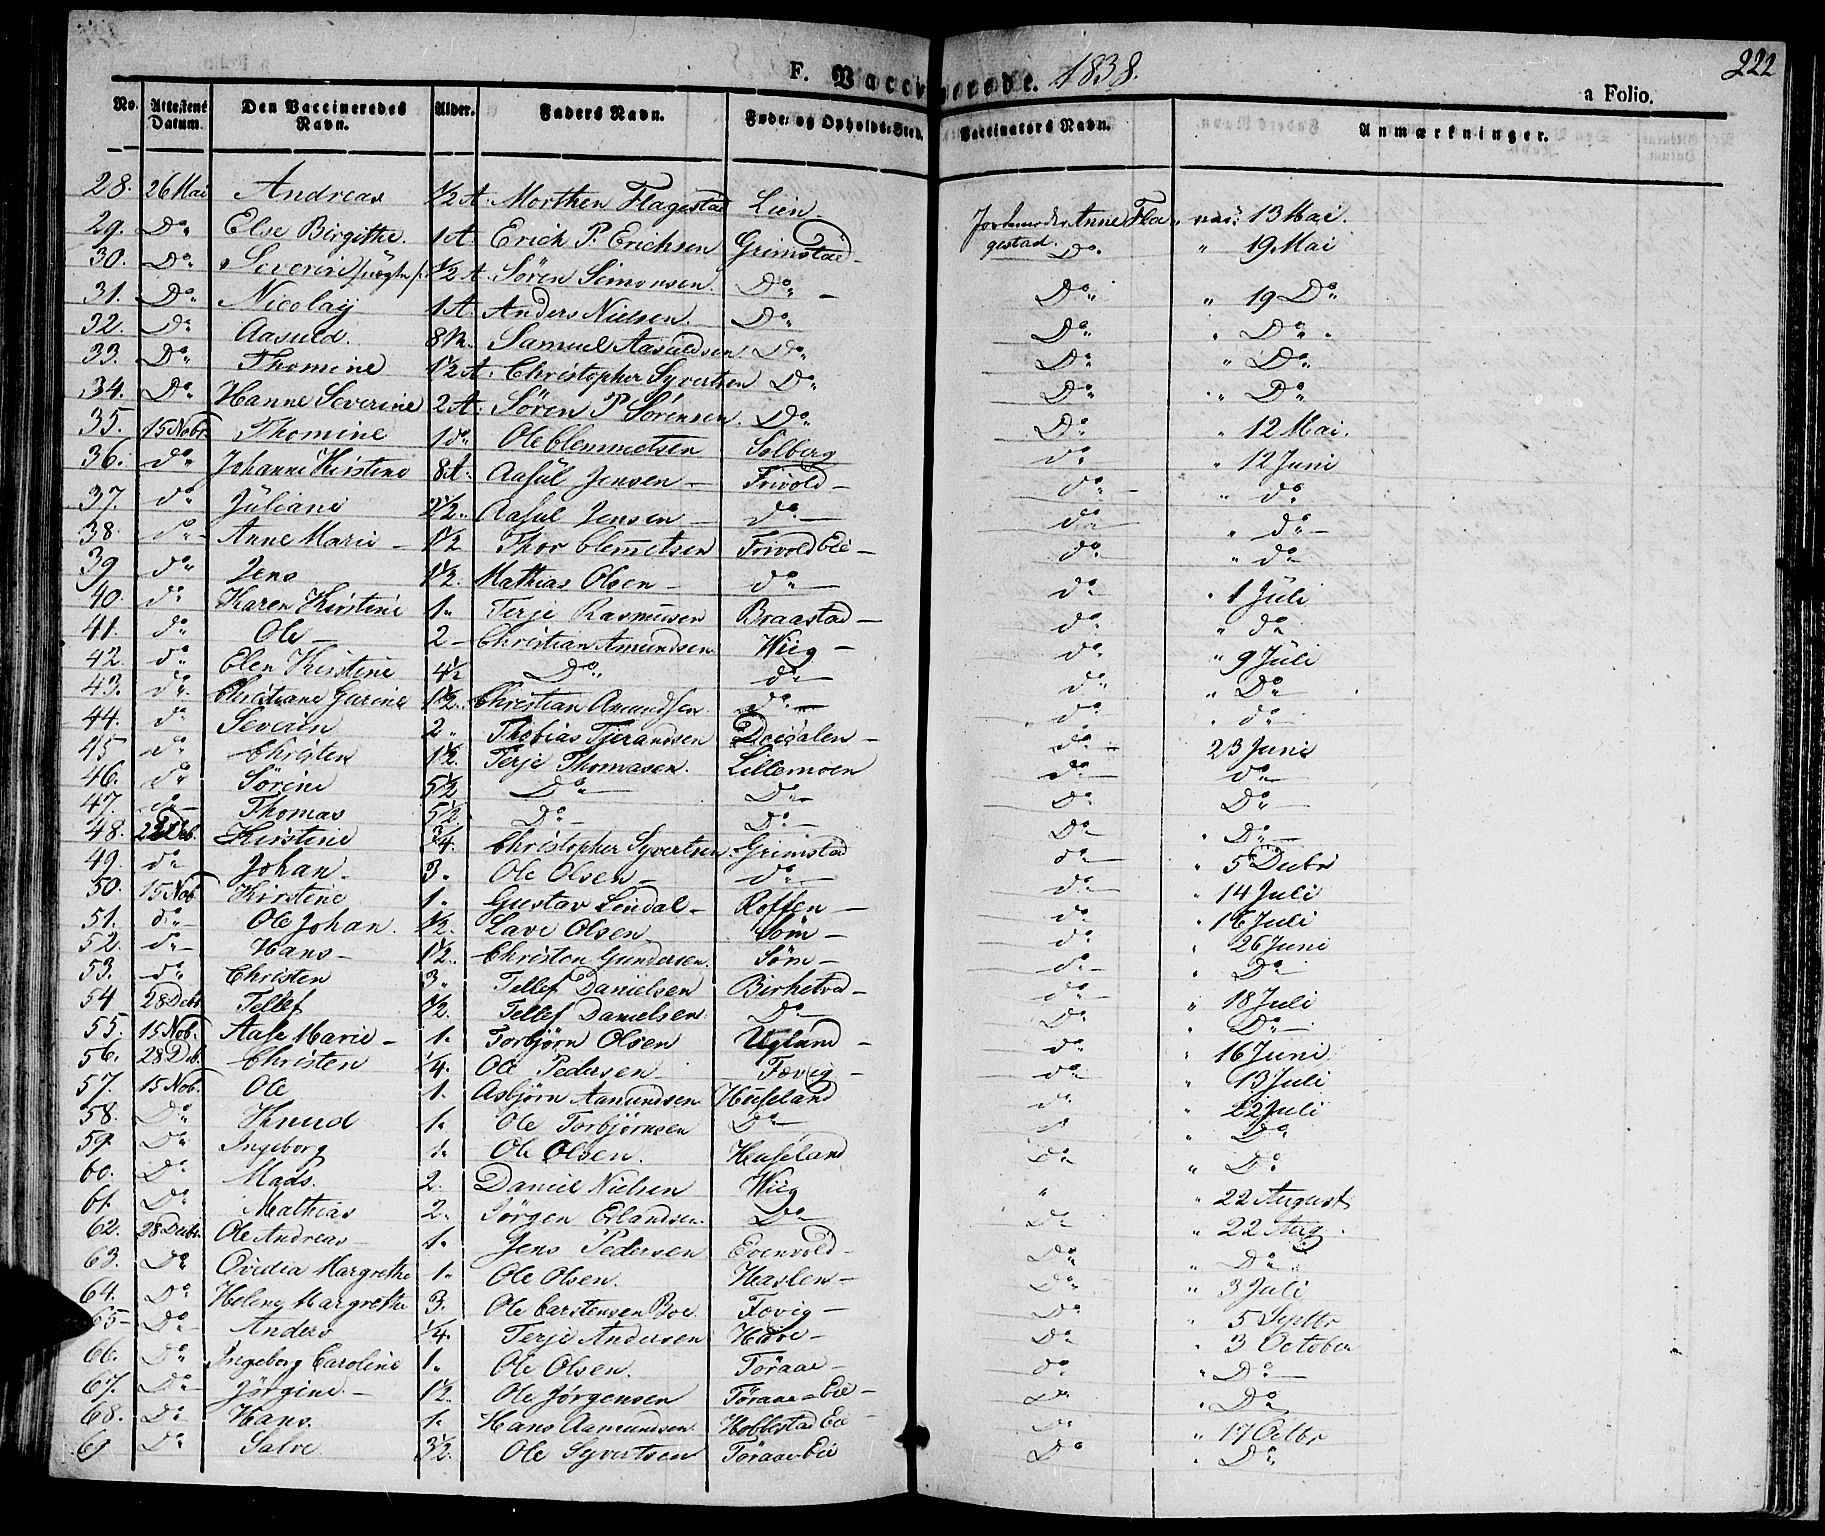 222
F. Vaccinerede. 1838.
a Folio.
No. Attestens Datum. Den Vaccineredes Navn. Alder. Faders Navn. Føde- og Opholds-Sted. Vaccinators Navn. Anmærkninger.
28. 26 Mai Andreas 1/2 A. Morthen Flagestad Lien Jordmoder Anne Flagestad. 13 Mai.
29. Do Else Birgithe. 1 A. Erich P. Erichsen Grimstad Do " 19 Mai
30. Do Severin 1/2 A. Sören Simonsen Do Do " 19 Do
31. Do Nicolay 1 A. Anders Nielsen. Do Do " Do
32. Do Aasuld. 8 M. Samuel Aasuldsen Do Do " Do
33. Do Thomine 1 1/2 A. Christopher Syvertsen Do Do " Do
34. Do Hanne Severine 2 A. Sören P. Sörensen. Do Do " 12 Mai.
35. 15 Nobr Thomine 1 do Ole Clemmetsen Solberg do " 12 Juni
36. do Johanne Kirstine 8 A. Aasul Jensen Frivold do " do
37. do Juliane 2 1/2 Aasul Jensen do do " do
38. do Anne Marie 1 1/2 Thor Clemetsen Frivold Eie do " do
39 do Jens 1 1/2. Mathias Olsen do do " 1 Juli
40. do Karen Kirstine 1. Terje Rasmusen Braastad do " do
41. do Ole 2 Christian Amundsen Wiig do " 9 Juli
42. do Elen Kirstine 4 1/2 Do do do " Do
43. do Christiane Gurine 1 1/2. Christian Amundsen do do " do
44. do Severin 2 Thobias Tjerandsen Dordalen do 23 Juni
45 do Christen 1 1/2. Terje Thomasen. Lillemoen do do
46. do Sörine 5 1/2 Do Do Do Do
47. do Thomas 5 1/2 Do Do Do " Do
48. Deb. Kirstine 3/4. Christopher Syvertsen. Grimstad do " 5 Debr
49. do Johan. 3. Ole Olsen do do " 14 Juli
50. 15 Nob Kirstine 1. Gustav Lindal Roffen do " 16 Juli
51. do Ole Johan. 1/2. Lave Olsen Söm do " 26 Juni
52. do Hans 1 1/2. Christen Gundersen. Söm do " Do
53. do Christen 3. Tellef Danielsen Birketvd do " 18 Juli
54 28 Debr Tellef 1/2. Tellef Danielsen Do Do " Do
55. 15 Nob. Aase Marie 1. Torbjörn Olsen Ugland do " 16 Juni
56. 28 Deb. Christen 1/4. Ole Pedersen Fævig do " 13 Juli
57. 15 Nob. Ole 1. Asbjörn Aamundsen Huseland do " 22 Juli
58. Do Knud 1. Ole Torbjörnsen Do do " Do
59. Do Ingeborg 1. Ole Olsen. Huseland Do " Do
60. Do Mads. 2. Daniel Nielsen Wiig " " 22 August
61. Do Mathias 2. Jörgen Erlandsen. Do Do " 22 Aug.
62. 28 Debr. Ole Andreas 1. Jens Pedersen Evenvold Do " Do
63. Do Ovidia Margrethe 1. Ole Olsen. Haslen Do " 3 Juli
64. Do Helene Margrethe 3. Ole Carstensen Boe. Fævig Do " 5 Septbr
65 Do Anders 1/4. Terje Andersen Do " 3 October
66. Do Ingeborg Caroline 1. Ole Olsen. Töraae do " Do
67. Do Jörgine. 1 1/2. Ole Jörgensen Töraae Eie Do " Do
68. Do Hans 1. Hans Aamundsen. Hobbestad Eie Do " 17 Octbr
69 Do Salve 3 1/2. Ole Syvertsen Töraae Eie Do " Do